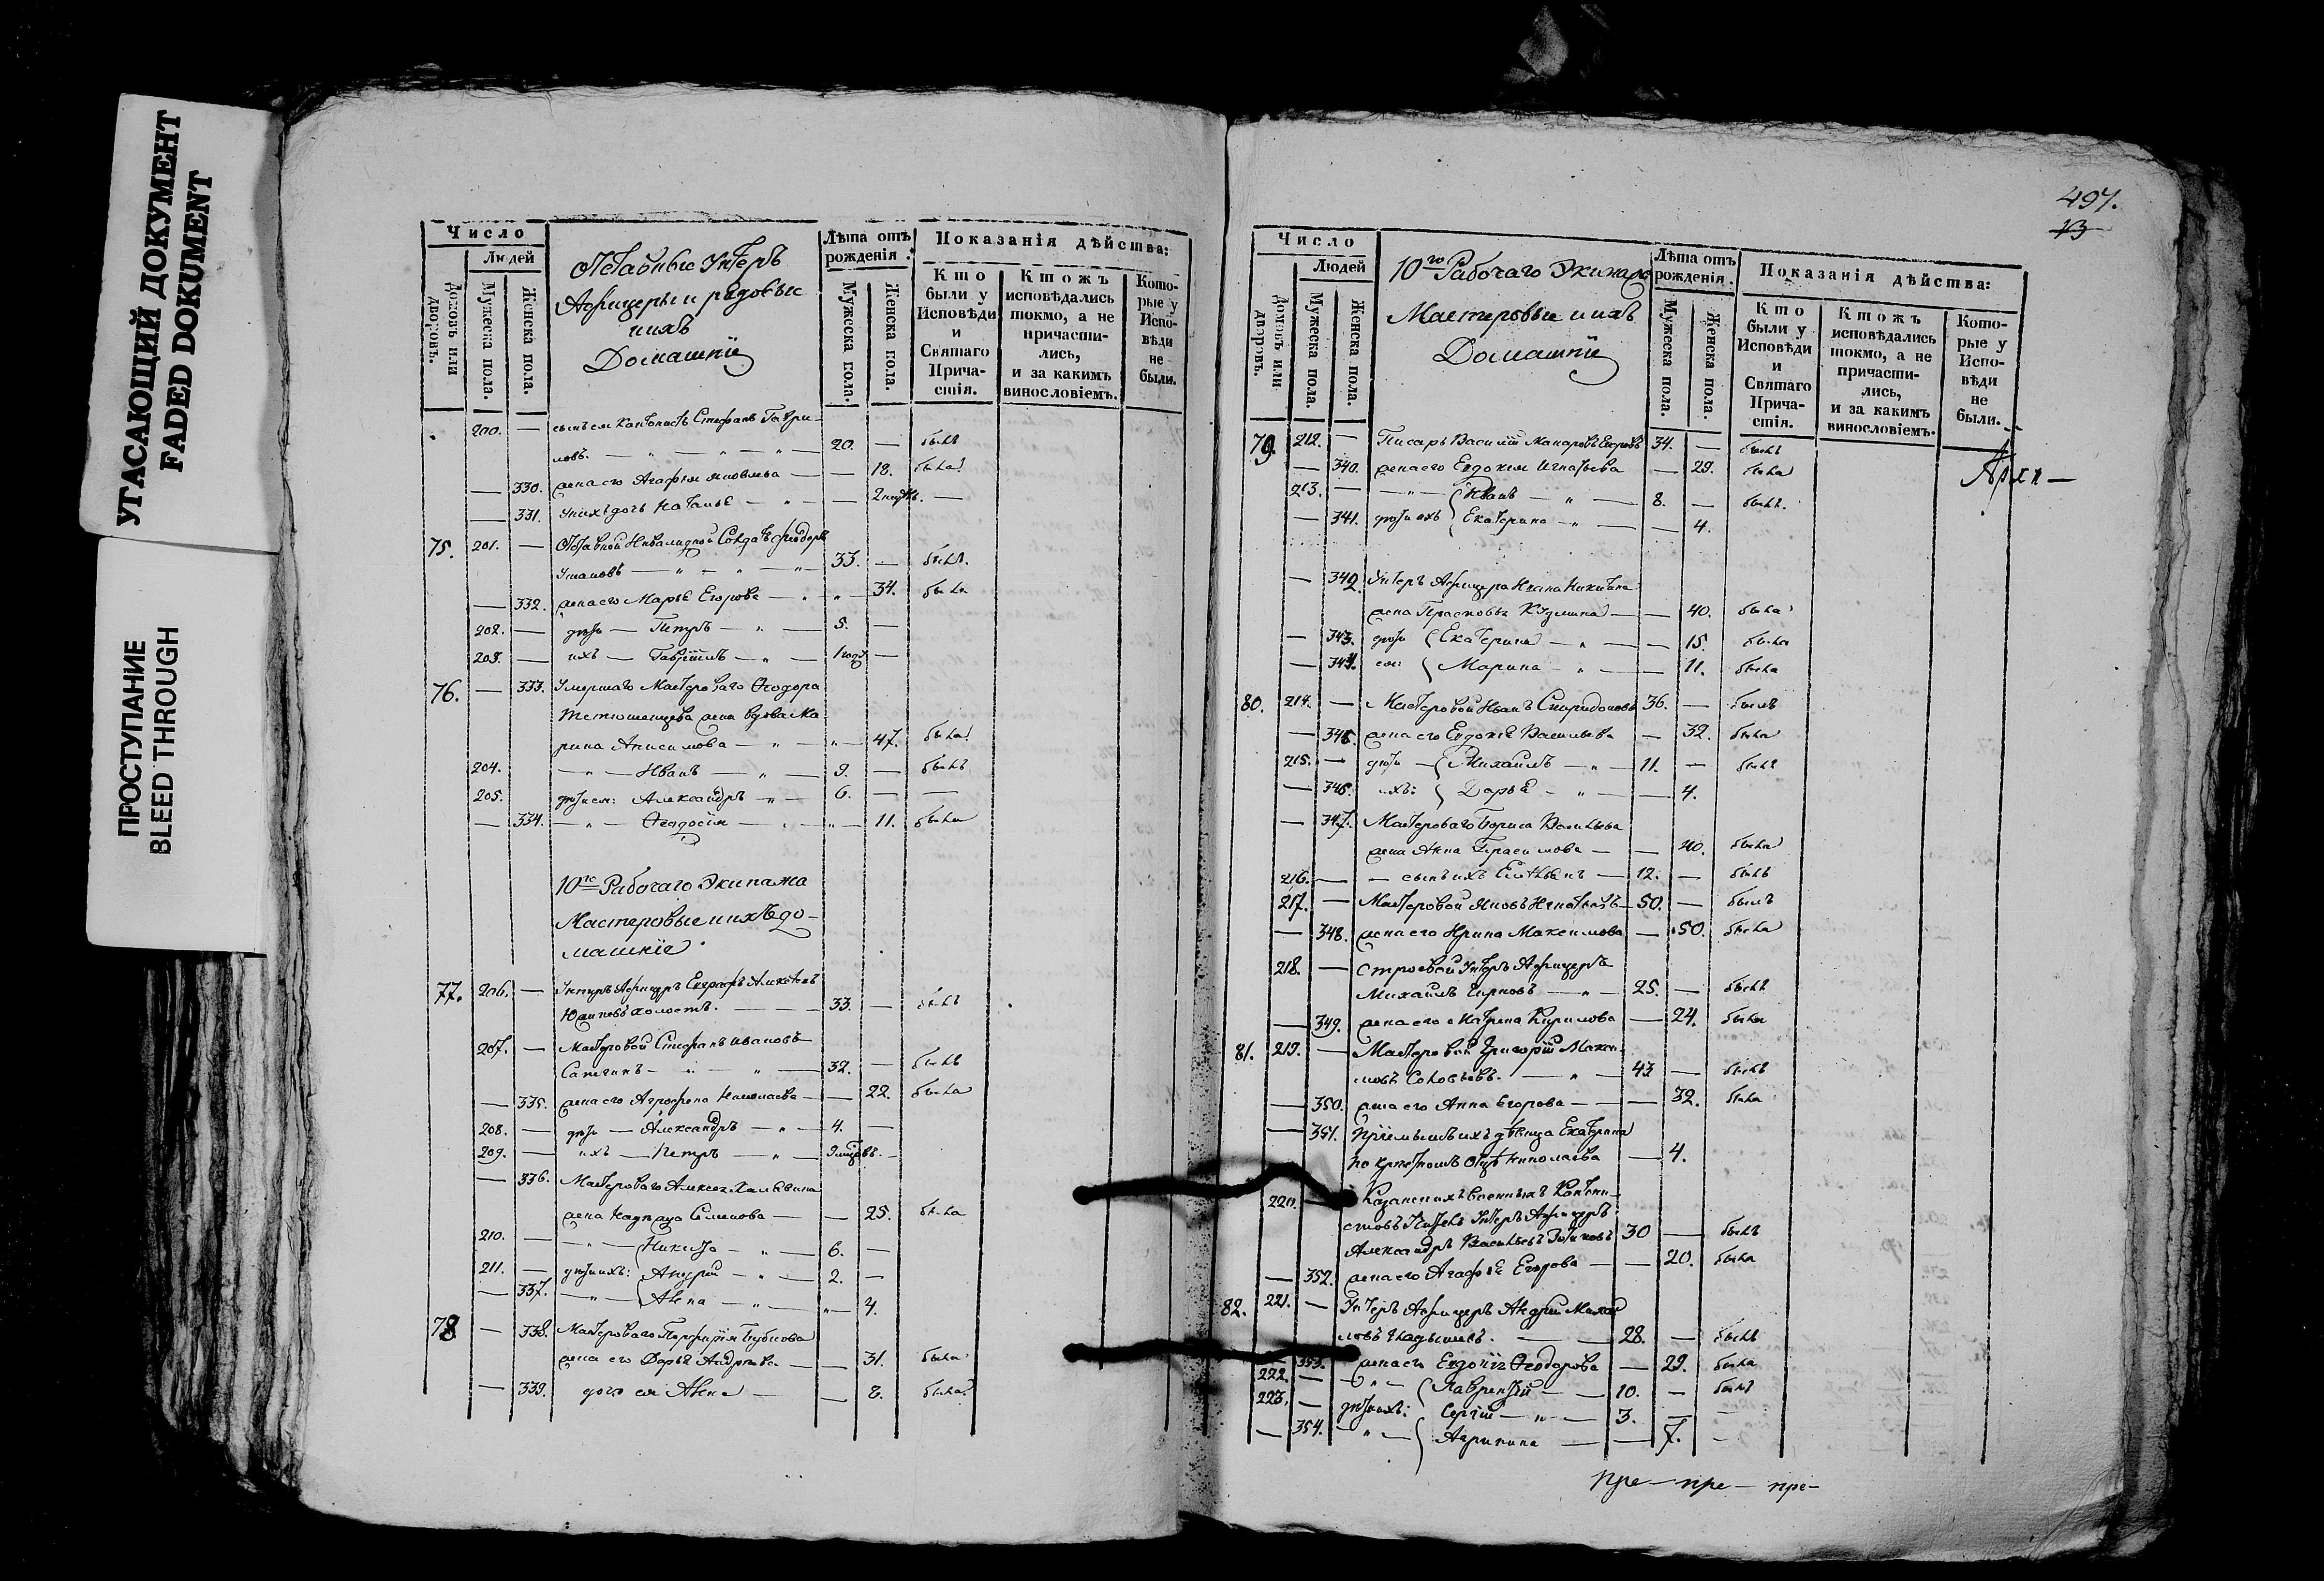 УГАСАЮЩИЙ ДОКУМЕНТ
FADED DOKUMENT
ПРОСТУПАНИЕ
BLEED THROUGH
Число
Людей
Домовъ или дворовъ.
Мужеска пола.
Женска пола.
Отставные Унтеръ
Афицеры и рядовые
и ихъ
Домашнiе
Лѣта отъ рожденiя.
Мужеска пола.
Женска пола.
Показанiя дѣйства:
Кто были у Исповѣди и Святаго Причастiя.
Ктожъ исповѣдались токмо, а не причастились, и за какимъ винословiемъ.
Которые у Исповѣди не были.
200. — сынъ ея Кантонистъ Стефанъ Гаври-
ловъ. — 20. — былъ
— 330. жена его Агафья Яковлева — — 18. была
— 331. У нихъ дочь Наталья — — 2
75. 201. — Отставной Инвалидной Солдатъ Ѳiодоръ
Ушаковъ — 33. — былъ.
— 332. жена его Марья Егорова — 34. была
202. — дѣти — Петръ — 5. —
203. — ихъ — Гаврiилъ — 1 годъ —
76. — 333. Умершаго Мастероваго Ѳеодора
жена вдова Ма
рина Анисимова — 47. была
204. — Иванъ — 9. — былъ
205. дѣти ея: Александръ — 6. — —
— 334. — Ѳеодосiя — 11. была
10го Рабочаго Экипажа
Мастеровые и ихъ до-
машнiе
77. 206. — Унтеръ Афицеръ Евграфъ Алексѣевъ
холостъ. — 33. — былъ
207. — Мастеровой Стефанъ Ивановъ
32. — былъ
— 335. жена его Агрофена Николаева — 22. была
208. — дѣти — Александръ — 4. —
209. — ихъ — Петръ — 9
— 336. Мастероваго Алексея
жена Надежда Семенова — 25. была
210. — Никита — 6. —
211. — дѣти ихъ: Андрей — 2. —
— 337. — Анна — 4.
78 — 338. Мастероваго Порфирiя
жена его Дарья Андреева — — 31. была
— 339. дочь ея Анна — — 8. была
497.
13
Число
Людей
Домовъ или дворовъ.
Мужеска пола.
Женска пола.
10го Рабочаго Экипажа
Мастеровые и ихъ
Домашнiе
Лѣта отъ рожденiя.
Мужеска пола.
Женска пола.
Показанiя дѣйства:
Кто были у Исповѣди и Святаго Причастiя.
Ктожъ исповѣдались токмо, а не причастились, и за какимъ винословiемъ.
Которые у Исповѣди не были.
79. 212. — Писарь Василiй Макаровъ Егоровъ 34. — былъ
— 340. жена его Евдокiя Игнатьева — 29. была
213. — Иванъ — 8. — былъ.
— 341. дѣти ихъ Екатерина — — 4.
— 342. Унтеръ Афицера Ивана Никитина
жена Прасковья Кузмина — — 40. была
— 343. дѣти Екатерина — — 15. была
— 344. ея: Марина — — 11. была
80. 214. — Мастеровой Иванъ Спиридоновъ 36. — былъ
— 345. жена его Евдокья Васильева — 32. была
215. — дѣти — Михаилъ — 11. — былъ
— 346. ихъ: Дарья — — 4.
— 347. Мастероваго Бориса Васильева
жена Анна Герасимова — — 40. была
216. — — сынъ ихъ — 12. — былъ
217. — Мастеровой Яковъ Игнатьевъ — 50. — былъ
— 348. жена его Ирина Максимова — 50. была
218. — Строевой Унтеръ Афицеръ
Михаилъ — 25. — былъ
— 349. жена его Матрена Кирилова — 24. была
81. 219. — Мастеровой Григорiй Макси-
мовъ Соловьевъ. — 43 — былъ
— 350. жена его Анна Егорова — — 32. была
— 351. Прiемышъ ихъ дѣвица Екатерина
по крестномъ отцѣ Николаева — 4.
220. — Казанскихъ военныхъ Кантони-
стовъ Унтеръ Афицеръ
Александръ Васильевъ 30 — былъ
— 352. жена его Агафья Егорова — — 20. была
82. 221. — Унтеръ Афицеръ Андрей Михай
ловъ — 28. — былъ
— 353. жена его Евдокiя Ѳеодорова — 29. была
222. — Лаврентiй — 10. — былъ
223. — дѣти ихъ: Сергiй — 3. — —
— 354. Агрипина — — 7. —
пре — пре — пре —